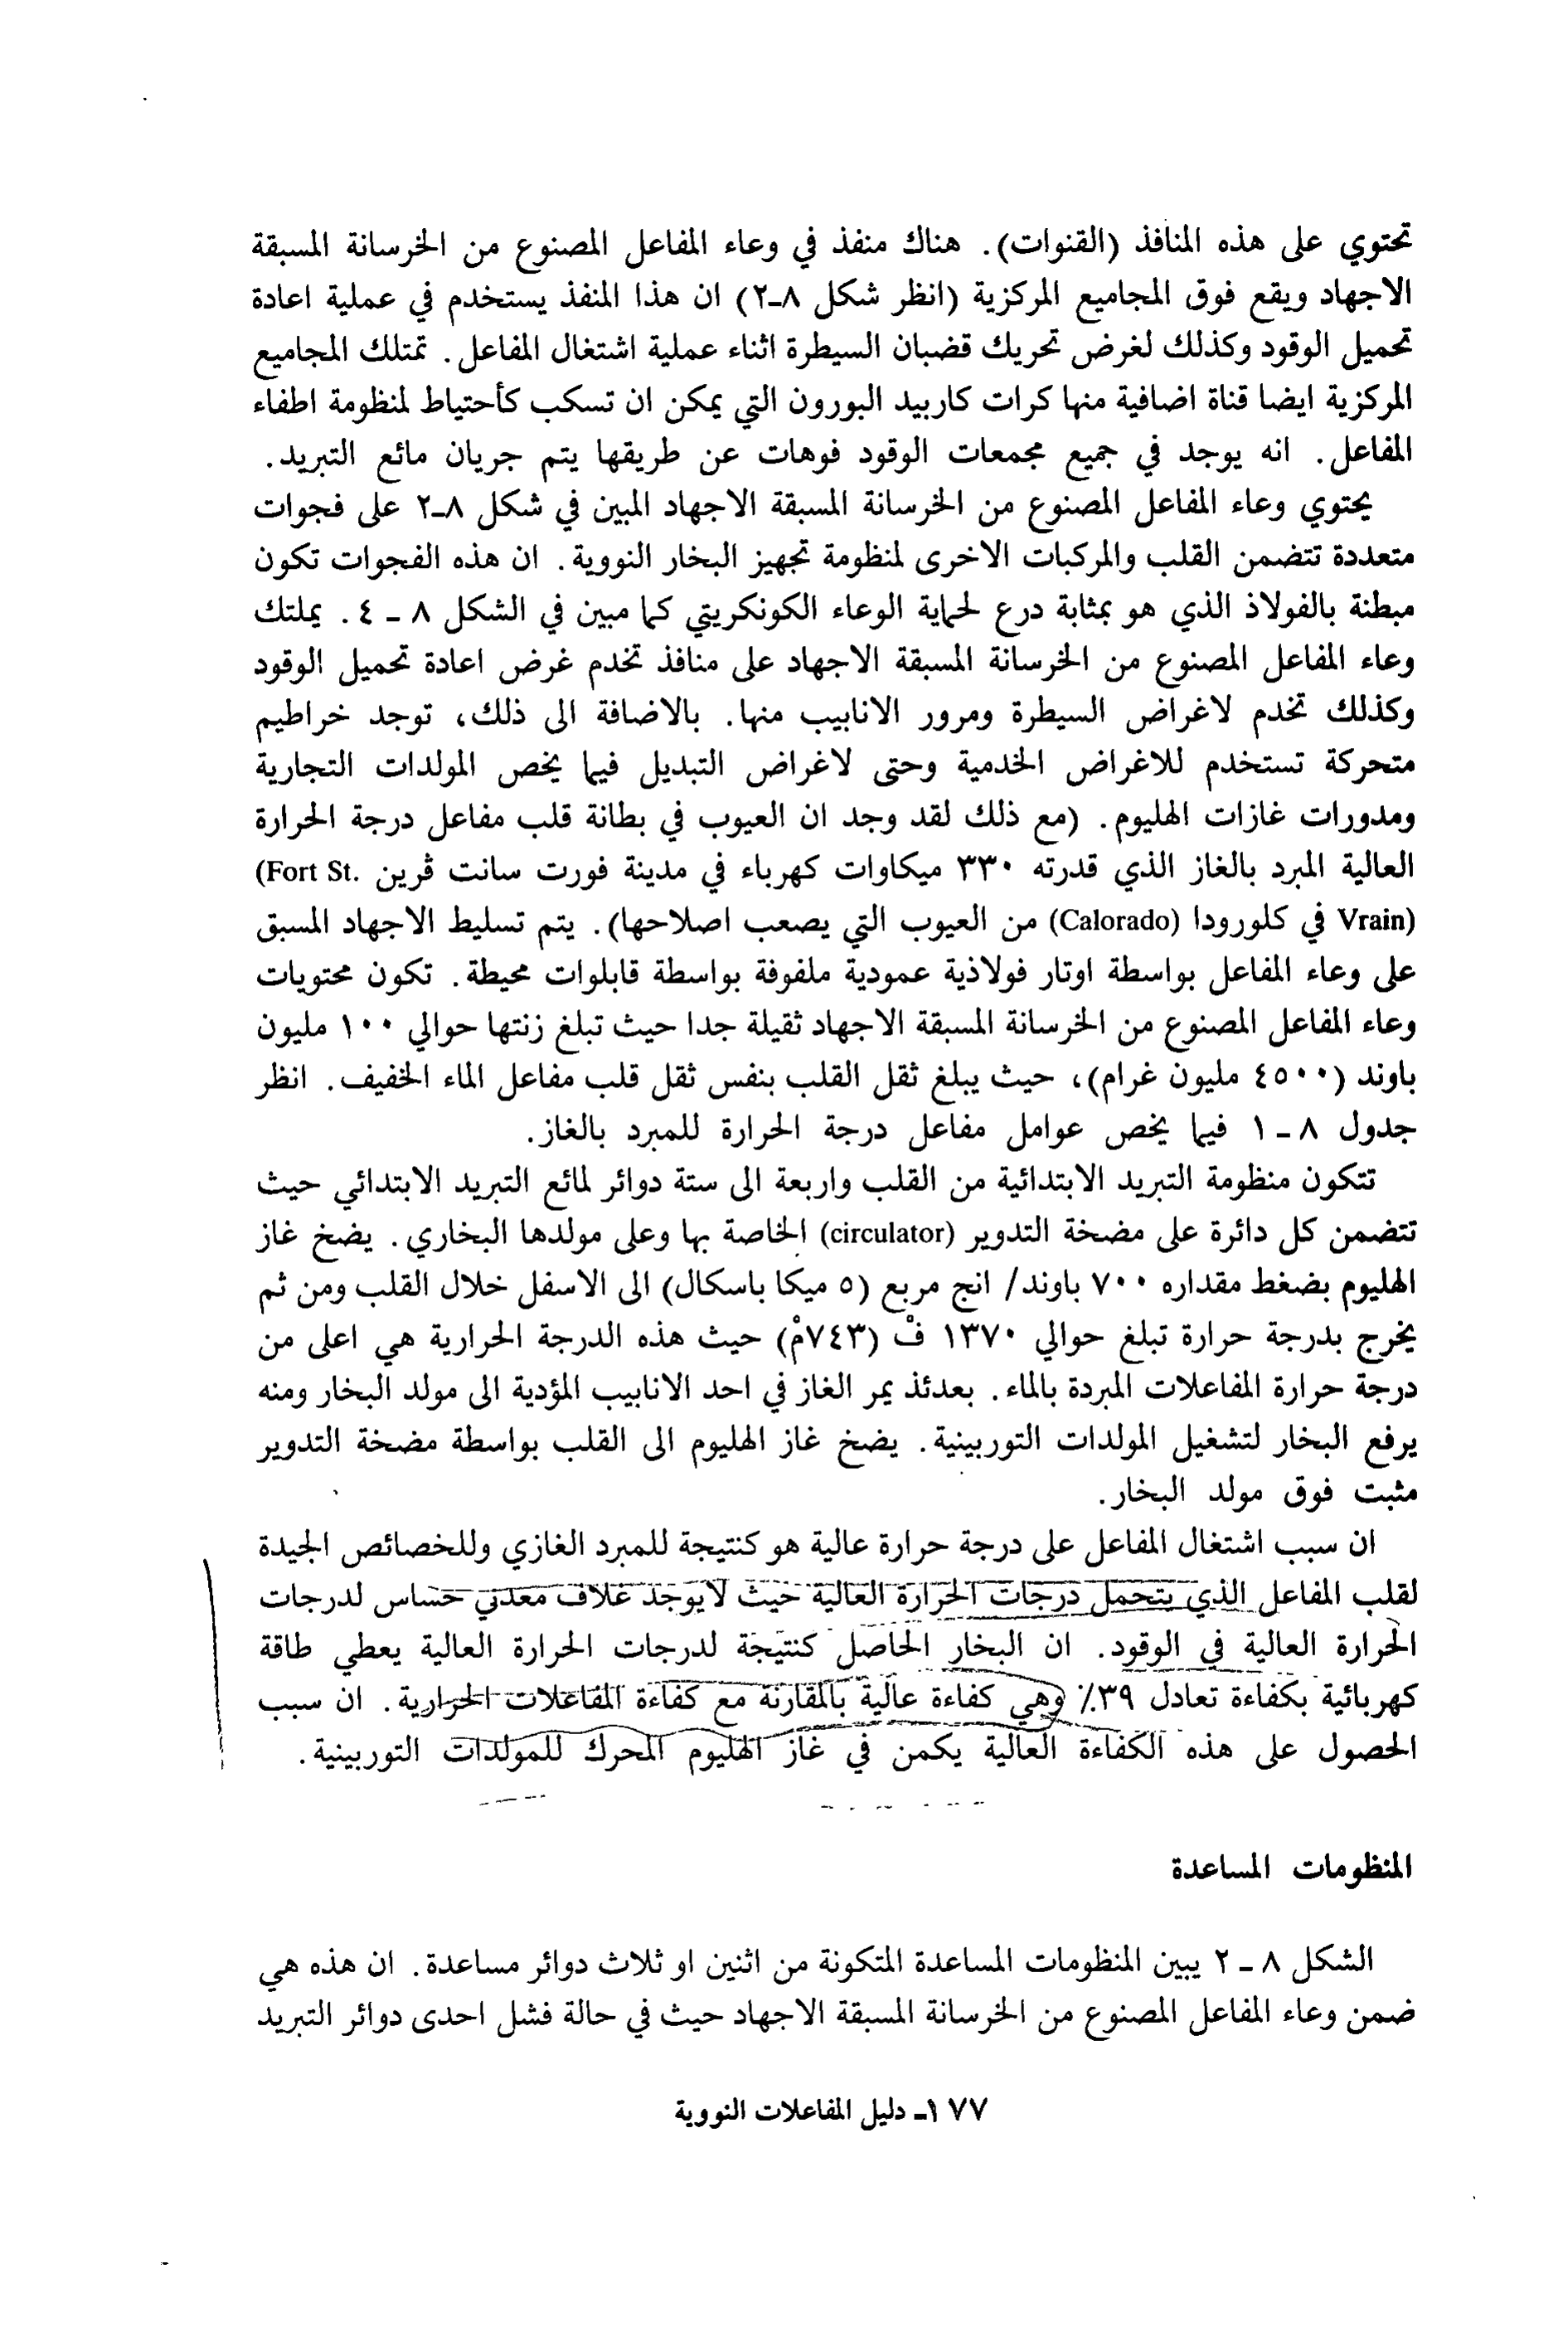 تحتوي على هذه المنافذ (القنوات). هناك منفذ في وعاء المفاعل المصنوع من الخرسانة المسبقة
الاجهاد ويقع فوق المجاميع المركزية (انظر شكل ٨-٢) ان هذا المنفذ يستخدم في عملية اعادة
تحميل الوقود وكذلك لغرض تحريك قضبان السيطرة اثناء عملية اشتغال المفاعل. تمتلك المجاميع
المركزية ايضا قناة اضافية منها كرات كاربيد البورون التي يمكن ان تسكب كأحتياط لمنظومة اطفاء
المفاعل. انه يوجد في جميع مجمعات الوقود فوهات عن طريقها يتم جريان مائع التبريد.
يحتوي وعاء المفاعل المصنوع من الخرسانة المسبقة الاجهاد المبين في شكل ٨-٢ على فجوات
متعددة تتضمن القلب والمركبات الاخرى لمنظومة تجهيز البخار النووية. ان هذه الفجوات تكون
مبطنة بالفولاذ الذي هو بمثابة درع لحماية الوعاء الكونكريتي كما مبين في الشكل ٨ - ٤. يملتك
وعاء المفاعل المصنوع من الخرسانة المسبقة الاجهاد على منافذ تخدم غرض اعادة تحميل الوقود
وكذلك تخدم لاغراض السيطرة ومرور الانابيب منها. بالاضافة الى ذلك، توجد خراطيم
متحركة تستخدم للاغراض الخدمية وحتى لاغراض التبديل فيما يخص المولدات التجارية
ومدورات غازات الهليوم. (مع ذلك لقد وجد ان العيوب في بطانة قلب مفاعل درجة الحرارة
العالية المبرد بالغاز الذي قدرته ٣٣٠ ميكاوات كهرباء في مدينة فورت سانت ڤرين (Fort St.
Vrain) في كلورودا (Calorado) من العيوب التي يصعب اصلاحها). يتم تسليط الاجهاد المسبق
على وعاء المفاعل بواسطة اوتار فولاذية عمودية ملفوفة بواسطة قابلوات محيطة. تكون محتويات
وعاء المفاعل المصنوع من الخرسانة المسبقة الاجهاد ثقيلة جدا حيث تبلغ زنتها حوالي ١٠٠ مليون
باوند (٤٥٠٠ مليون غرام)، حيث يبلغ ثقل القلب بنفس ثقل قلب مفاعل الماء الخفيف. انظر
جدول ٨ - ١ فيما يخص عوامل مفاعل درجة الحرارة للمبرد بالغاز.
تتكون منظومة التبريد الابتدائية من القلب واربعة الى ستة دوائر لمائع التبريد الابتدائي حيث
تتضمن كل دائرة على مضخة التدوير (circulator) الخاصة بها وعلى مولدها البخاري. يضخ غاز
الهليوم بضغط مقداره ٧٠٠ باوند/ انج مربع (٥ ميكا باسكال) الى الاسفل خلال القلب ومن ثم
يخرج بدرجة حرارة تبلغ حوالي ١٣٧٠ ف° (٧٤٣م°) حيث هذه الدرجة الحرارية هي اعلى من
درجة حرارة المفاعلات المبردة بالماء. بعدئذ يمر الغاز في احد الانابيب المؤدية الى مولد البخار ومنه
يرفع البخار لتشغيل المولدات التوربينية. يضخ غاز الهليوم الى القلب بواسطة مضخة التدوير
مثبت فوق مولد البخار.
ان سبب اشتغال المفاعل على درجة حرارة عالية هو كنتيجة للمبرد الغازي وللخصائص الجيدة
لقلب المفاعل الذي يتحمل درجات الحرارة العالية حيث لايوجد غلاف معدني حساس لدرجات
الحرارة العالية في الوقود. ان البخار الحاصل كنتيجة لدرجات الحرارة العالية يعطي طاقة
كهربائية بكفاءة تعادل ٣٩٪ وهي كفاءة عالية بالمقارنة مع كفاءة المفاعلات الحرارية. ان سبب
الحصول على هذه الكفاءة العالية يكمن في غاز الهليوم المحرك للمولدات التوربينية.
المنظومات المساعدة
الشكل ٨ - ٢ يبين المنظومات المساعدة المتكونة من اثنين او ثلاث دوائر مساعدة. ان هذه هي
ضمن وعاء المفاعل المصنوع من الخرسانة المسبقة الاجهاد حيث في حالة فشل احدى دوائر التبريد
١٧٧- دليل المفاعلات النووية